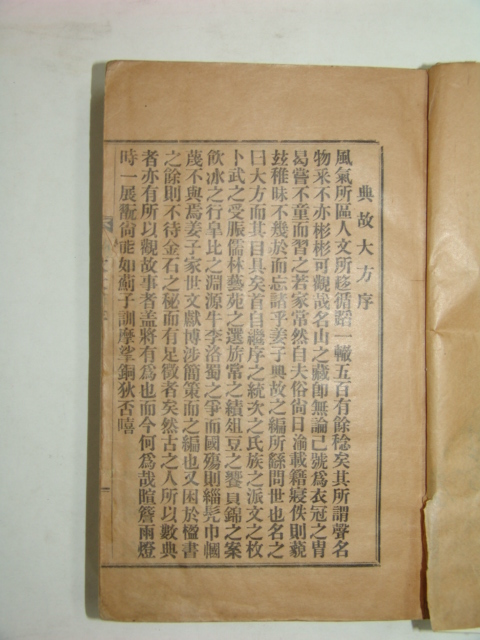 典故大方序
風氣所區人文所移循蹈一轍五百有餘稔矣其所謂聲名
物采不亦彬彬可觀哉名山之藏卽無論已號爲衣冠之胄
曷嘗不童而習之若家常然自夫俗尙日渝載籍寢佚則藐
玆稚昧不幾於而忘諸乎姜子典故之編所繇問世也名之
曰大方而其目具矣首自繼序之統次之氏族之派文之枚
卜武之受脤儒林藝苑之選旂常之績俎豆之饗貝錦之案
飮冰之行皐比之淵源牛李洛蜀之爭而國殤則緇髡巾幗
蔑不與焉姜子家世文獻博涉簡策而之編也又困於櫼書
之餘則不待金石之秘而有足徵者矣然古之人所以數典
者亦有所以觀故事者盖將有爲也而今何爲哉暄簷雨燈
時一展翫尙能如薊子訓摩挲銅狄否噫